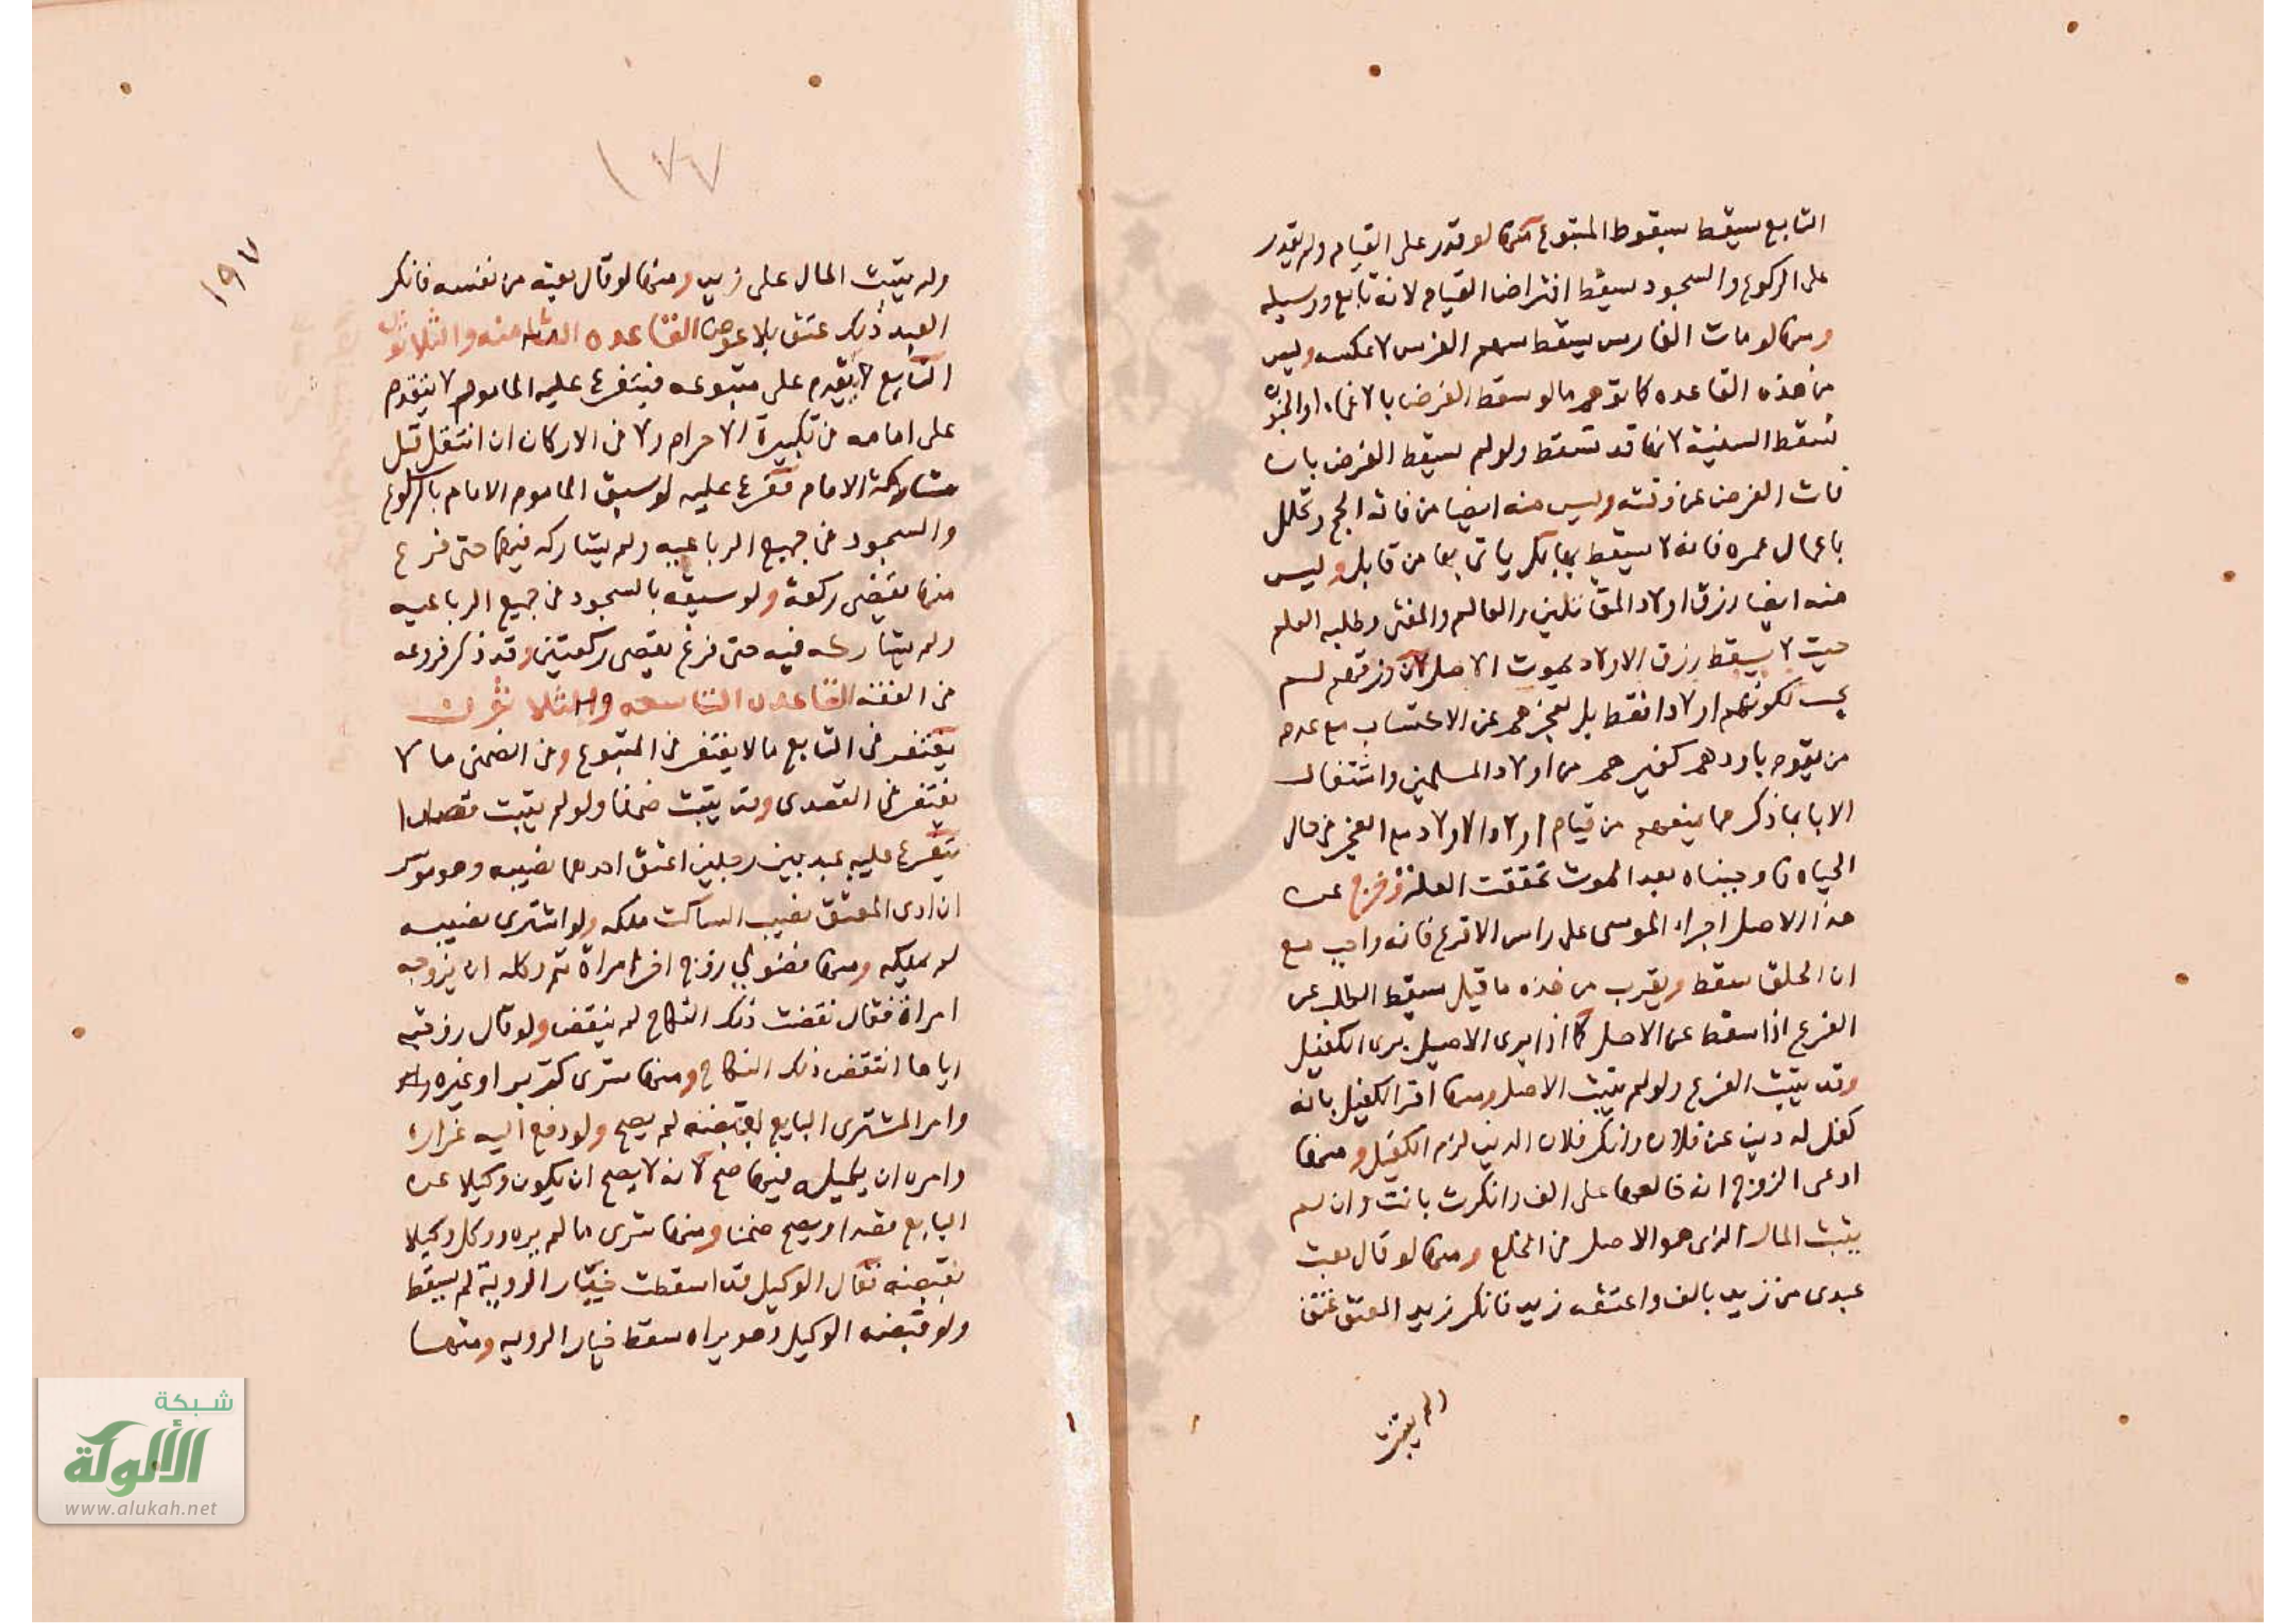 التابع يسقط بسقوط المتبوع منها لو قدر على القيام ولم يقدر
على الركوع والسجود يسقط افتراض القيام لانه تابع ووسيله
ومنها لو مات الفارس يسقط سهم الفرس لا عكسه وليس
من هذه القاعده كما توهم ما لو سقط الفرض بالاغماء او الجنون
تسقط السنية لانها قد تسقط ولو لم يسقط الفرض بان
فات الفرض عن وقته وليس منه ايضا من فاته الحج وتحلل
باعمال عمره فانه لا يسقط بها بل ياتي بها من قابل وليس
منه ايضا رزق اولاد المقاتلين والعالم والمفتى وطلبه العلم
حيث لا يسقط رزق الاولاد بموت الاصل لان رزقهم لم
يجب لكونهم اولادا فقط بل لعجزهم عن الاكتساب مع عدم
من يقوم باودهم كغيرهم من اولاد المسلمين واشتغال
الابا بما ذكر مما يمنعهم من قيام اود الاولاد مع العجز في حال
الحياه فاوجبناه بعد الموت تحققت العلة وخرج عن
هذا الاصل اجراء الموسى على راس الاقرع فانه واجب مع
ان الحلق سقط ويقرب من هذه ما قيل يسقط الطلب عن
الفرع اذا سقط عن الاصل كما اذا برى الاصيل برى الكفيل
وقد يثبت الفرع ولو لم يثبت الاصل ومنها اقر الكفيل بانه
كفل له دين عن فلان وانكر فلان الدين لزم الكفيل ومنها
ادعى الزوج انه خالعها على الف وانكرت بانت وان لم
يثبت المال الذى هو الاصل فى الخلع ومنها لو قال بعت
عبدى من زيد بالف واعتقه زيد فانكر زيد العتق عتق
ولم يثبت
١٧٧
١٩٧
ولم يثبت المال على زيد ومنها لو قال بعته من نفسه فانكر
العبد ذلك عتق بلا عوض القاعده الثامنه والثلاثون
التابع لا يتقدم على متبوعه فيتفرع عليه الماموم لا يتقدم
على امامه فى تكبيرة الاحرام ولا فى الاركان ان انتقل قبل
مشاركة الامام وتفرع عليه لو سبق الماموم الامام بالركوع
والسجود فى جميع الرباعيه ولم يشاركه فيها حتى فرغ
منها يقضى ركعة ولو سبقه بالسجود فى جميع الرباعيه
ولم يشاركه فيه حتى فرغ يقضى ركعتين وقد ذكر فروعه
فى الفقه القاعده التاسعه والثلاثون
يغتفر فى التابع ما لا يغتفر فى المتبوع وفى الضمنى ما لا
يغتفر فى القصدى وقد يثبت ضمنا ولو لم يثبت قصدا
يتفرع عليه عبد بين رجلين اعتق احدهما نصيبه وهو موسر
ان ادى المعتق نصيب الساكت ملكه ولو اشترى نصيبه
لم يملكه ومنها فضولى زوج اخر امراة ثم وكله ان يزوجه
امراة فقال نقضت ذلك النكاح لم ينقض ولو قال زوجته
اياها انتقض ذلك النكاح ومنها شرى كر بر او غيره
وامر المشترى البايع بقبضه لم يصح ولو دفع اليه غرارة
وامره ان يكيله فيها صح لانه لا يصح ان يكون وكيلا عن
البايع قصدا ويصح ضمنا ومنها شرى ما لم يره ووكل وكيلا
بقبضه فقال الوكيل قد اسقطت خيار الروية لم يسقط
ولو قبضه الوكيل وهو يراه سقط خيار الرويه ومنها
شبكة
الألوكة
www.alukah.net